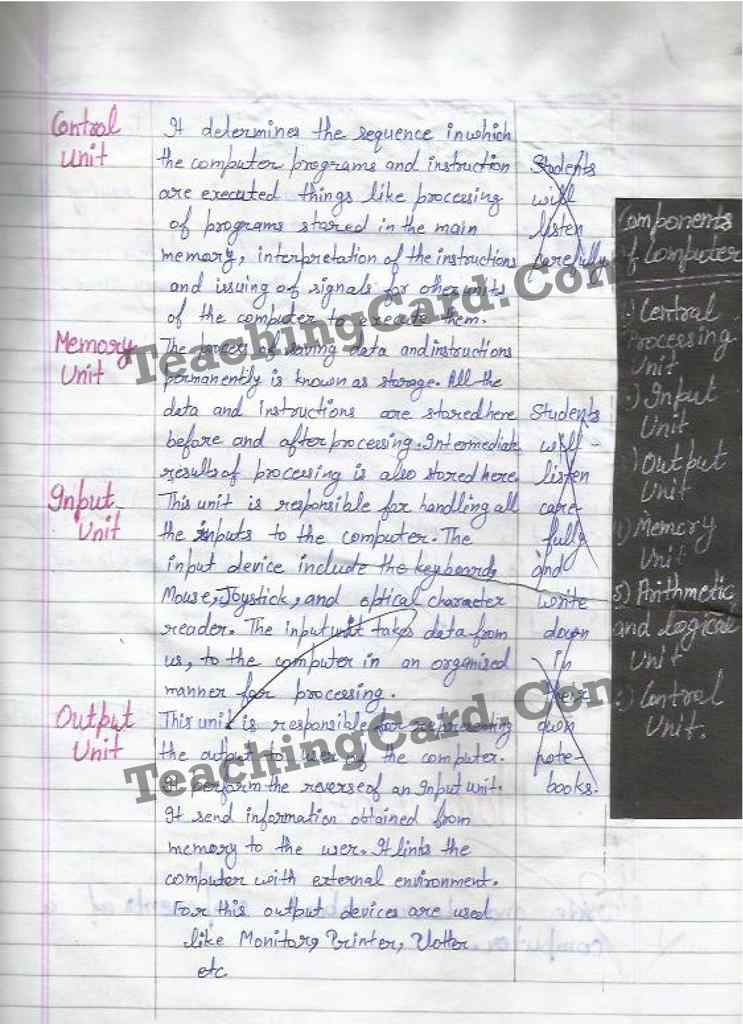 Control
Unit
It determines the sequence in which
the computer programs and instruction
are executed things like processing
of programs stored in the main
memory, interpretation of the instructions
and issuing of signals for other units
of the computer to execute them.
Students
will
listen
carefully
Memory
Unit
The process of saving data and instructions
permanently is known as storage. All the
data and instructions are stored here
before and after processing. Intermediate
results of processing is also stored here
Input
Unit
This unit is responsible for handling all
the inputs to the computer. The
input device include the keyboard,
Mouse, Joystick, and optical character
reader. The input unit takes data from
us, to the computer in an organised
manner for processing.
Students
will
listen
care-
fully
and
write
down
in
their
own
note-
books.
Output
Unit
This unit is responsible for representing
the output to user by the computer.
It perform the reverse of an Input unit.
It send information obtained from
memory to the user. It links the
computer with external environment.
For this output devices are used
like Monitors, Printer, Plotter
etc
Components
of Computer
Central
Processing
Unit
Input
Unit
Output
Unit
Memory
Unit
5) Arithmetic
and Logical
Unit
Control
Unit.
TeachingCard.Com
TeachingCard.Com